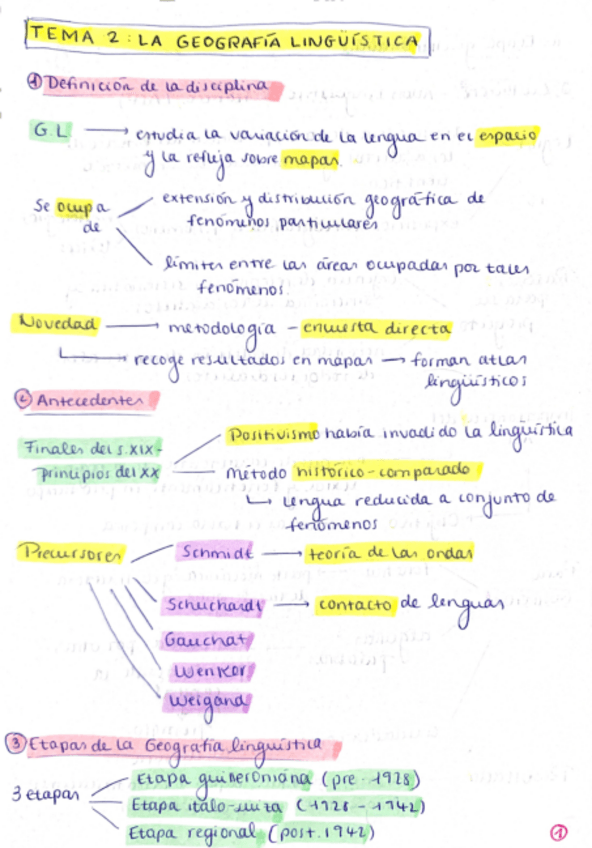 TEMA 2: LA GEOGRAFÍA LINGÜÍSTICA
① Definición de la disciplina
G.L → estudia la variación de la lengua en el espacio
y la refleja sobre mapas.
Se ocupa de
extensión y distribución geográfica de
fenómenos particulares
límites entre las áreas ocupadas por tales
fenómenos.
Novedad → metodología - encuesta directa
→ recoge resultados en mapas → forman atlas
lingüísticos
② Antecedentes
Finales del s.XIX-
principios del XX
Positivismo había invadido la lingüística
método histórico-comparado
↳ lengua reducida a conjunto de
fenómenos
Precursores
Schmidt → teoría de las ondas
Schuchardt → contacto de lenguas
Gauchat
Wenker
Weigand
③ Etapas de la Geografía lingüística
3 etapas
Etapa guilleroniana (pre-1928)
Etapa italo-suiza (1928-1942)
Etapa regional (post.1942)
①